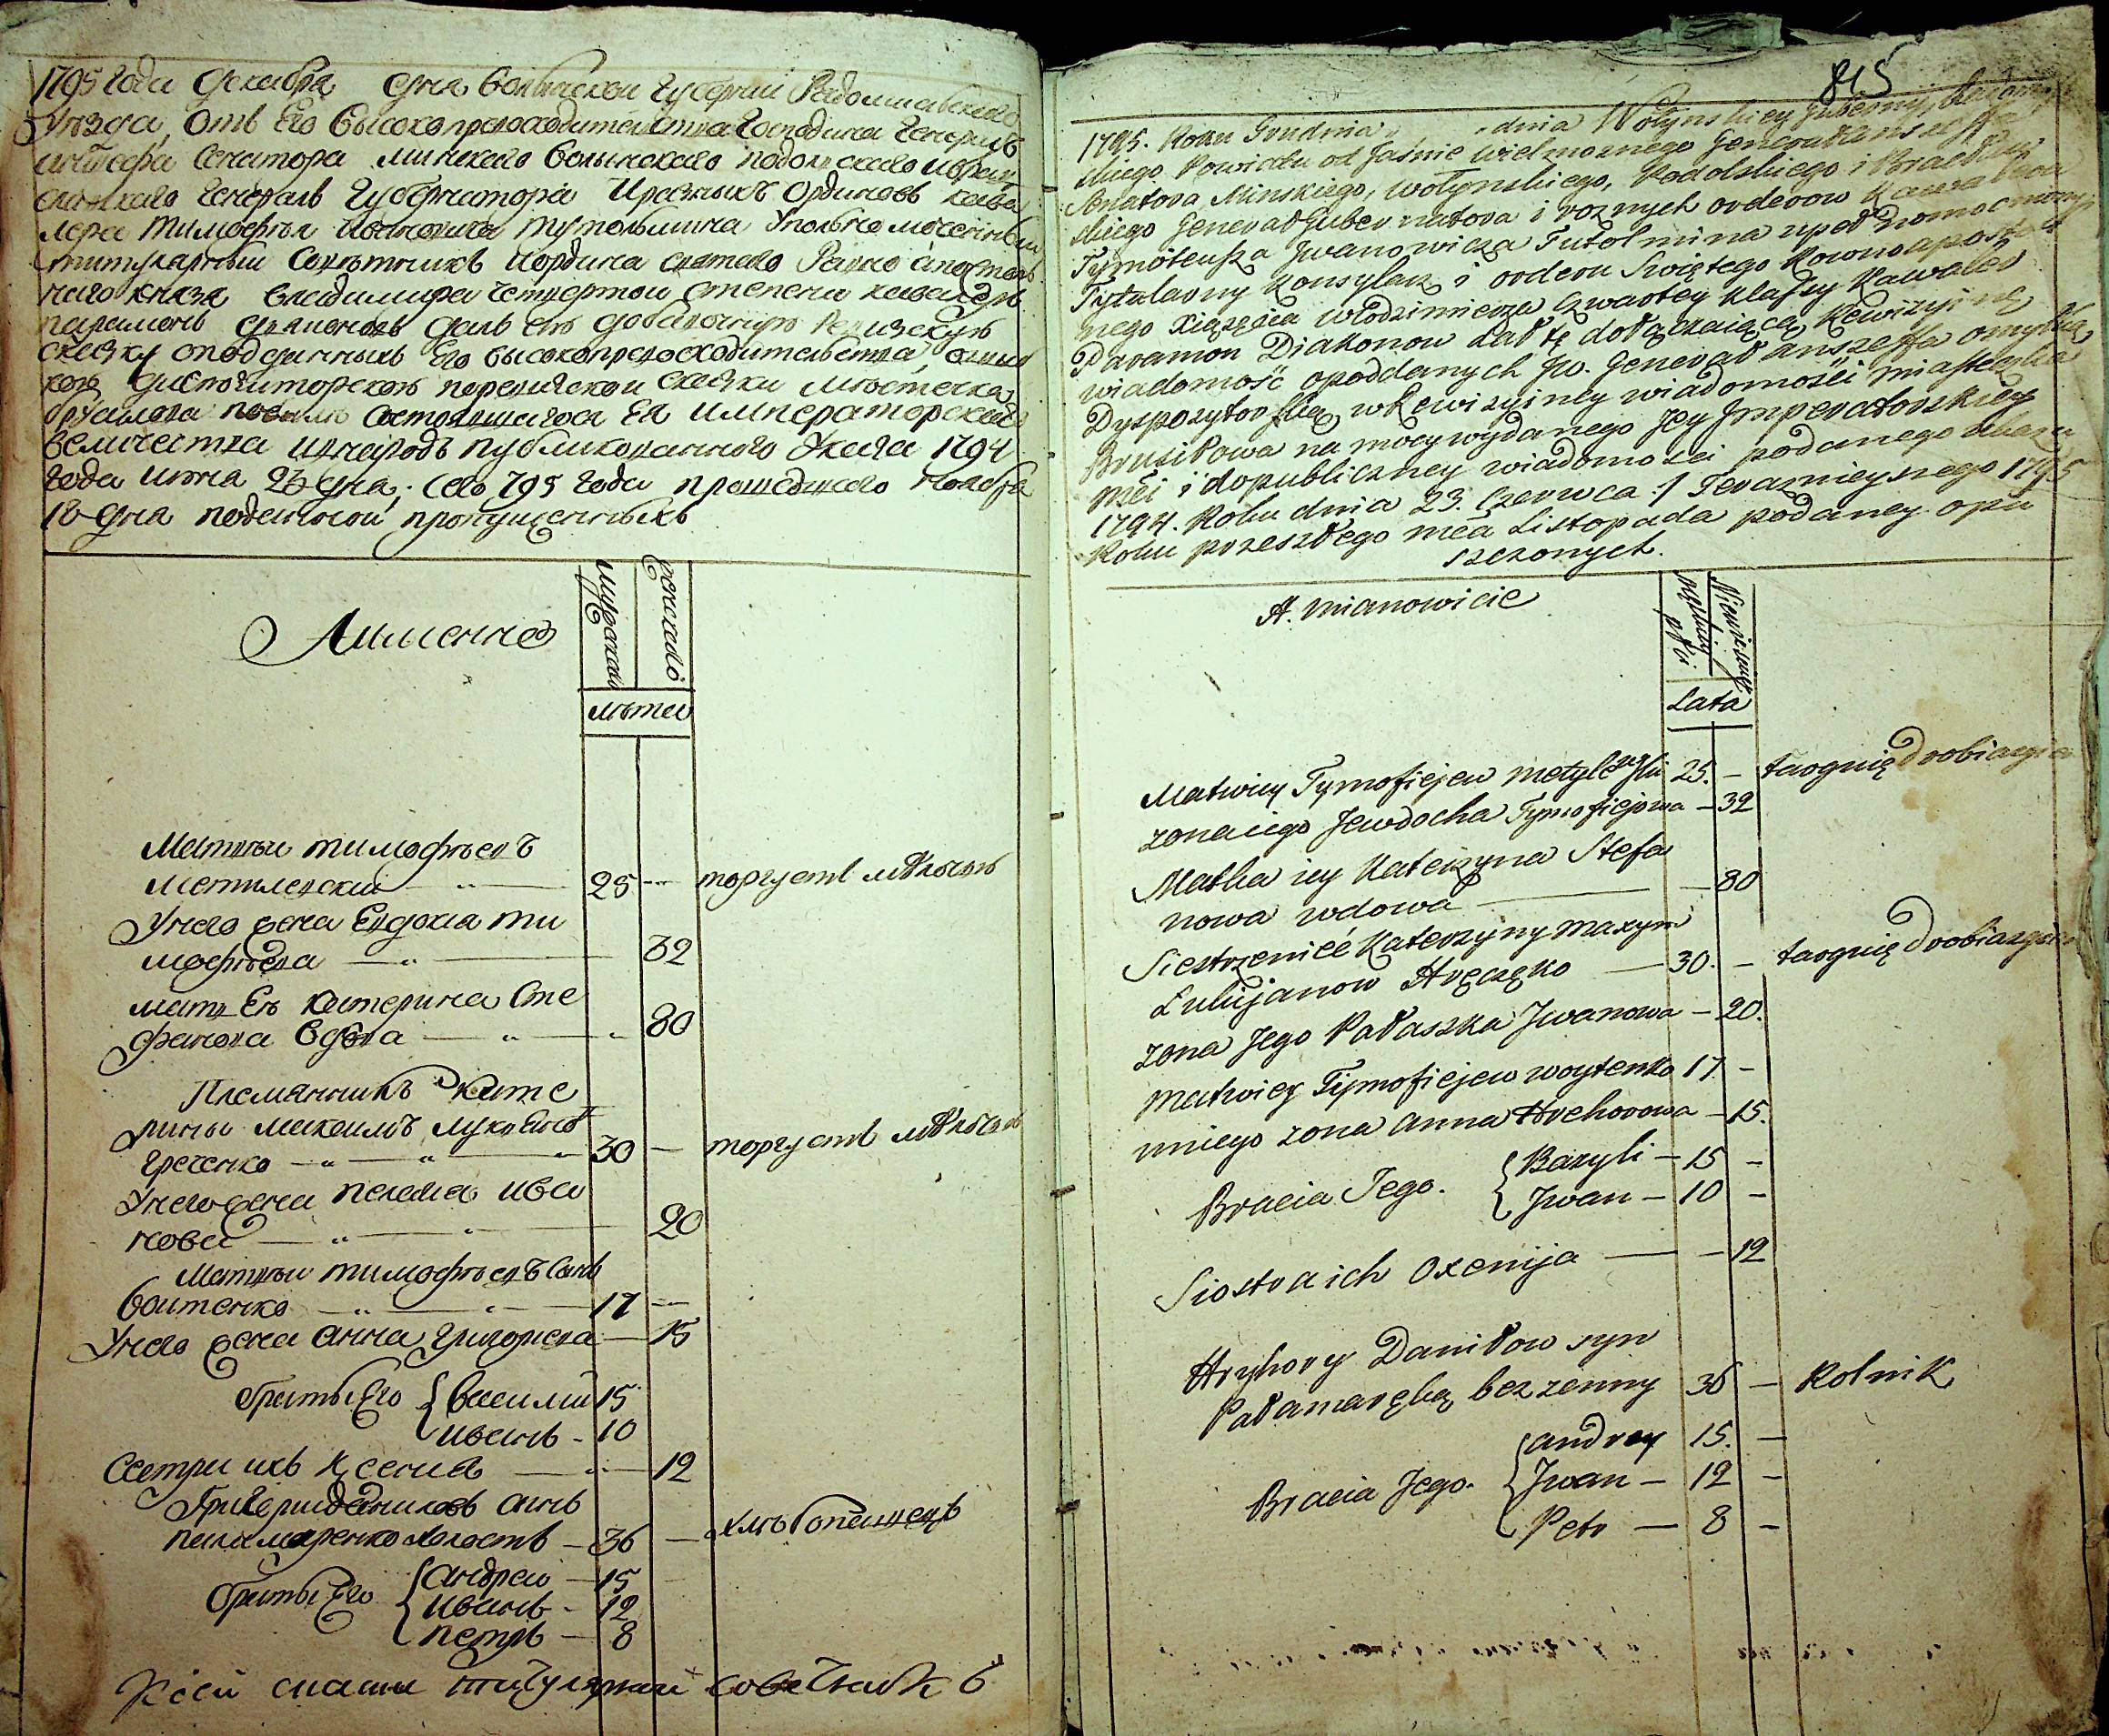 1795 года декабря дня волынской губернии Радомышльского
уезда, отъ Его высокопревосходительства господина генералъ
аншефа сенатора минского волынского подольского и брац
славского генералъ губернатора и разныхъ орденовъ кава
лера Тимофея Ивановича Тутолмина уполномоченный
титулярный советникъ и ордена святаго равно апостоль
наго князя Владимира четвертой степени кавалеръ
парамонъ дьяконовъ далъ сію добавочную ревизскую
сказку о подданныхъ Его высокопревосходительства,
диспозиторскою переписной сказки местечка
брусилова по силе состоявшагося Ея императорскаго
величества и в народъ публикованного указа 1794
года июня 23 дня, сего 795 года прошедшего ноября
18 дня поданной, пропущенныхъ
А именно
мужеска
женска
лета
Матвеи тимофеевъ
Метилевский 25 — торгуетъ мѣлочью
У него жена Евдокиа ти
мофеева 32
мать Ево катерина Сте
фанова вдова 80
Племянникъ кате
рины максимъ лукьяновъ
греченко 30 — торгуетъ мѣлочью
У него жена пелагиа ива
нова 20
Матвеи тимофеевъ сынъ
воитенко 17 —
У него жена анна григорьева 15
браты Его { василий 15
иванъ - 10
Сестра ихъ Ксения 12
Григорий даниловъ сынъ
паламаренко холостъ - 36 — хлѣбопашецъ
браты Его { андреи - 15
иванъ - 12
петръ - 8
К сей сказки титулярный советникъ
815
1795. Roku Grudnia „ „ dnia Wołynskiey Gubernij, Radomysl
skiego Powiatu od Jaśnie Wielmożnego Generał anszeffa
Senatora Minskiego, Wołynskiego, Podolskiego i Bracław
skiego Generał Gubernatora i roznych orderow Kawalera
Tymoteusza Jwanowicza Tutolmina upełnomocniony
Tytularny Konsylarz i orderu Swiętego Rownoapostol
nego xiązęcia Włodzimierza czwartey klassy Kawaler
Paramon Diakonow dał tę dołączaiącą Rewizyiną
wiadomość opoddanych Jw. Generał anszeffa omyłką
Dyspozytorską wRewizyiney wiadomości miasteczka
Brusiłowa na mocy wydanego Jey Jmperatorskiey
Mci i dopubliczney wiadomości podanego ukazu
1794. Roku dnia 23. Czerwca :/ Terazniey snego 1795
Roku przeszłego mca Listopada podaney opu
szczonych.
A. mianowicie
męskiey płci
Niewiesciey
Lata
Matwiey Tymofiejew Metylewski 25. — targuię Drobiazgie
zona iego Jewdocha Tymofiejowa — 32
Matka iey Katerzyna Stefa
nowa wdowa — 80
Siestrzeniec Katerzyny Maxym
Łukijanow Hręczęko — 30. — targuię Drobiazgiem
Zona Jego Pałaszka Jwanowa — 20.
Matwiey Tymofiejew woytenko 17. —
uniego zona anna Hrehorowa — 15.
Bracia Jego. { Bazyli — 15 —
Jwan — 10 —
Siostra ich Oxenija — 12
Hryhory Daniłow syn
Pałamaręką bezzenny 36 — Rolnik
Bracia Jego. { andrey 15. —
Jwan — 12 —
Petr — 8 —